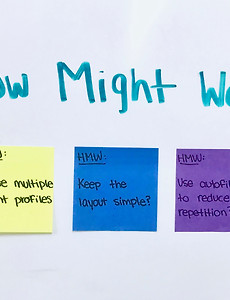 ow Might We
:
se multiple
nt profiles
HMW:
Keep the
layout simple?
HMW:
Use autofill
to reduce
repetition?